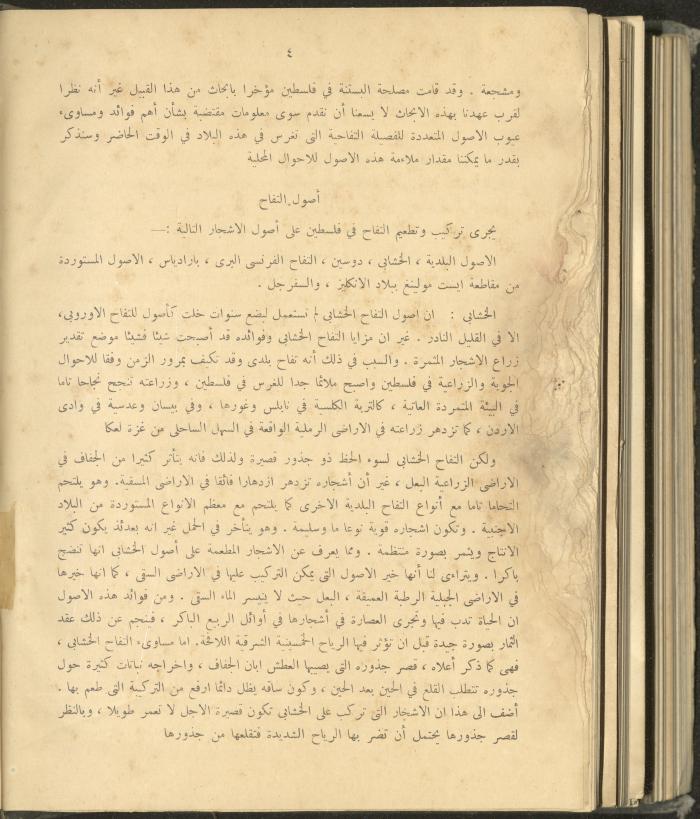 ٤
ومشجعة . وقد قامت مصلحة البستنة في فلسطين مؤخرا بابحاث من هذا القبيل غير أنه نظرا
لقرب عهدنا بهذه الابحاث لا يسعنا أن نقدم سوى معلومات مقتضبة بشأن أهم فوائد ومساوىء
عيوب الاصول المتعددة للفصيلة التفاحية التى تغرس في هذه البلاد في الوقت الحاضر وسنذكر
بقدر ما يمكننا مقدار ملاءمة هذه الاصول للاحوال المحلية
أصول التفاح
يجرى تركيب وتطعيم التفاح في فلسطين على أصول الاشجار التالية :—
الاصول البلدية ، الخشابى ، دوسين ، التفاح الفرنسى البرى ، بارادياس ، الاصول المستوردة
من مقاطعة ايست مولينغ ببلاد الانكليز ، والسفرجل .
الخشابى : ان اصول التفاح الخشابى لم تستعمل لبضع سنوات خلت كأصول للتفاح الاوروبى،
الا في القليل النادر . غير ان مزايا التفاح الخشابى وفوائده قد أصبحت شيئا فشيئا موضع تقدير
زراع الاشجار المثمرة . والسبب في ذلك أنه تفاح بلدى وقد تكيف بمرور الزمن وفقا للاحوال
الجوية والزراعية في فلسطين واصبح ملائما جدا للغرس في فلسطين ، وزراعته تنجح نجاحا تاما
في البيئة المتمردة العاتية ، كالتربة الكلسية في نابلس وغورها ، وفي بيسان وعدسية في وادى
الاردن ، كما تزدهر زراعته في الاراضى الرملية الواقعة في السهل الساحلى من غزة لعكا
ولكن التفاح الخشابى لسوء الحظ ذو جذور قصيرة ولذلك فانه يتأثر كثيرا من الجفاف في
الاراضى الزراعية البعل ، غير أن أشجاره تزدهر ازدهارا فائقا في الاراضى المسقية. وهو يلتحم
التحاما تاما مع أنواع التفاح البلدية الاخرى كما يلتحم مع معظم الانواع المستوردة من البلاد
الاجنبية . وتكون اشجاره قوية نوعا ما وسليمة . وهو يتأخر في الحمل غير انه بعدئذ يكون كثير
الانتاج ويثمر بصورة منتظمة . ومما يعرف عن الاشجار المطعمة على أصول الخشابى انها تنضج
باكرا . ويتراءى لنا أنها خير الاصول التى يمكن التركيب عليها في الاراضى السقى ، كما انها خيرها
في الاراضى الجبلية الرطبة العميقة ، البعل حيث لا يتيسر الماء السقى . ومن فوائد هذه الاصول
ان الحياة تدب فيها وتجرى العصارة في أشجارها في أوائل الربيع الباكر ، فينجم عن ذلك عقد
الثمار بصورة جيدة قبل ان تؤثر فيها الرياح الخمسينية الشرقية اللافحة. اما مساوىء التفاح الخشابى ،
فهى كما ذكر أعلاه ، قصر جذوره التى يصيبها العطش ابان الجفاف ، واخراجه نباتات كثيرة حول
جذوره تتطلب القلع في الحين بعد الحين ، وكون ساقه يظل دائما ارفع من التركيبة التى طعم بها .
أضف الى هذا ان الاشجار التى تركب على الخشابى تكون قصيرة الاجل لا تعمر طويلا ، وبالنظر
لقصر جذورها يحتمل أن تضر بها الرياح الشديدة فتقلعها من جذورها